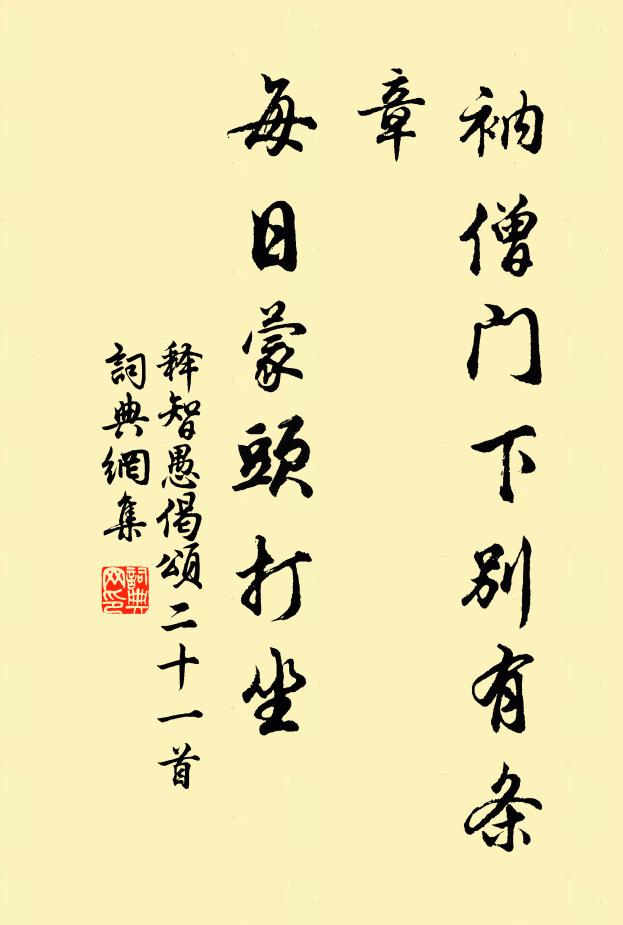 衲僧門下別有条
章
每日蒙頭打坐
释智愚偈頌二十一首
詞典網集
詞典网印